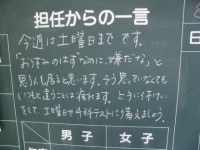 担任からの一言
今週は土曜日まで です。
「お休みのはずなのに、嫌だな。」と
思う人も居ると思います。そう思っていなくても
いつもと違うことは疲れます。とうに付けい
をして、土曜日や4科テストに備えましょう。
男子
女子
日